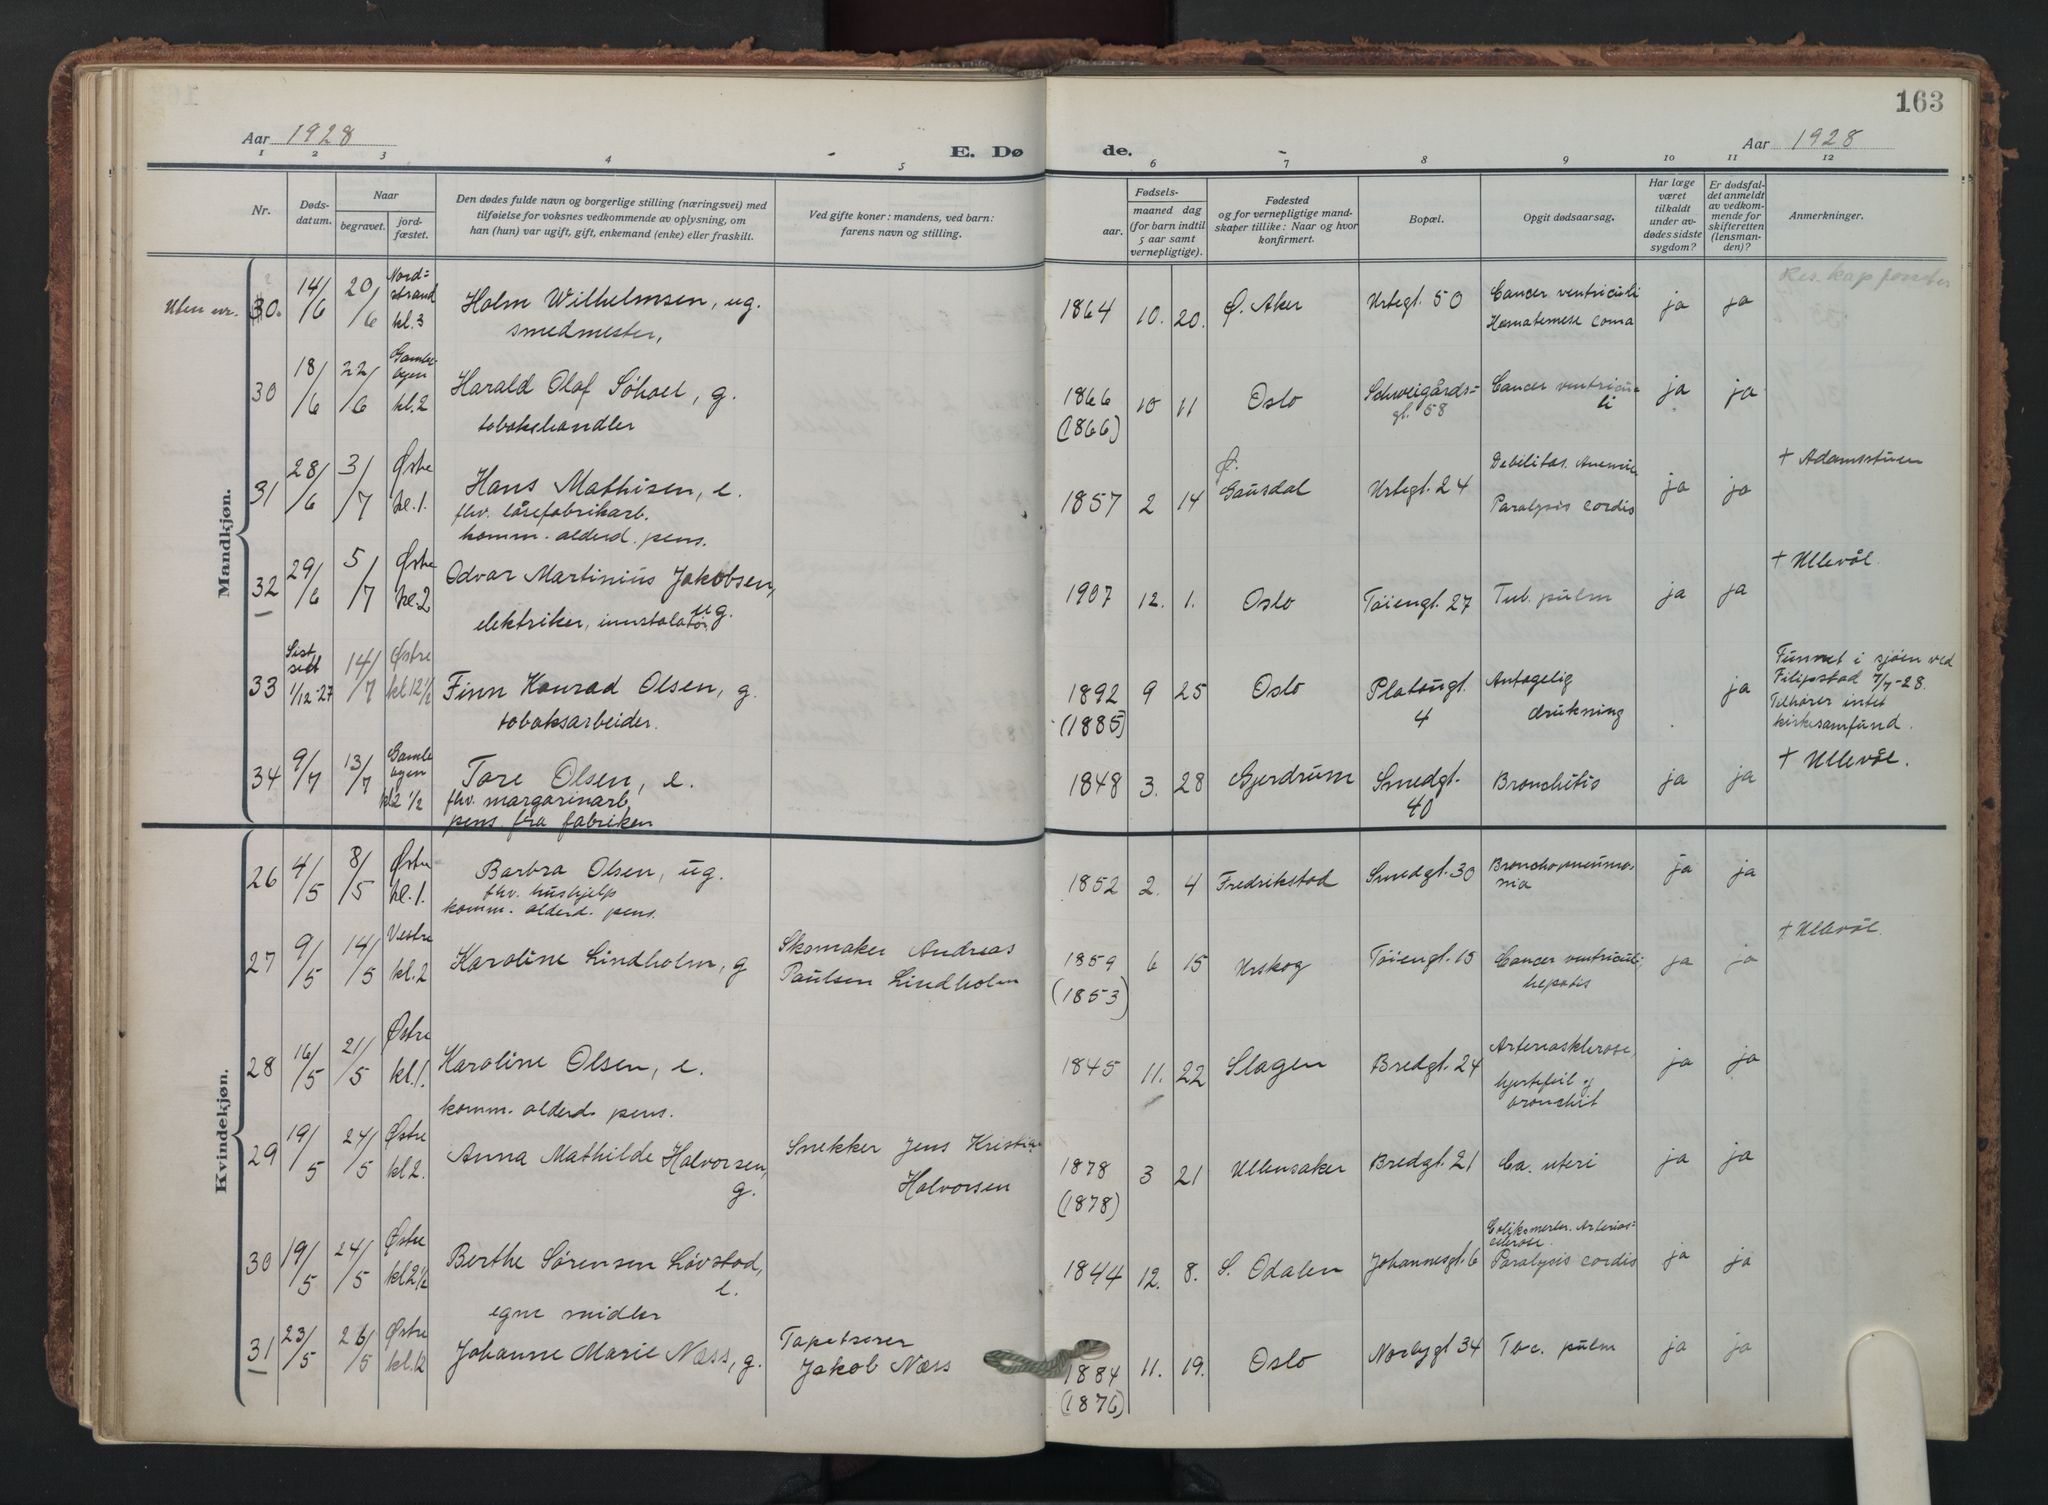 163
Aar 1928
E. Dø de.
Aar 1928
1 2 3 4 5 6 7 8 9 10 11 12
Nr.
Døds-
datum.
Naar
begravet.
jord-
fæstet.
Den dødes fulde navn og borgerlige stilling (næringsvei) med
tilføielse for voksnes vedkommende av oplysning, om
han (hun) var ugift, gift, enkemand (enke) eller fraskilt.
Ved gifte koner: mandens, ved barn:
farens navn og stilling.
Fødsels-
aar.
maaned dag
(for barn indtil
5 aar samt
vernepligtige).
Fødested
og for vernepligtige mand-
skaper tillike: Naar og hvor
konfirmert.
Bopæl.
Opgit dødsaarsag.
Har læge
været
tilkaldt
under av-
dødes sidste
sygdom?
Er dødsfal-
det anmeldt
av vedkom-
mende for
skifteretten
(lensman-
den)?
Anmerkninger.
Mandkjøn.
Uten nr. 30. 14/6 20/6 Nord-
strand
kl. 3
Holm Wilhelmsen, ug.
smedmester,
1864 10. 20. Ø. Aker Urtegt. 50
Cancer ventriculi
Hæmatemese coma
ja ja
Res. kap.
30 18/6 22/6 Gamle-
byen
kl. 2
Harald Olaf Søhoel, g.
tobakshandler
1866
(1866)
10 11 Oslo
Schweigårds-
gt. 58
Cancer ventricu-
li
ja ja
31 28/6 3/7 Østre
kl. 1.
Hans Mathisen, e.
fhv. lårefabrikarb.
komm. alderd. pens.
1857 2 14
Ø.
Gausdal
Urtegt. 24
Debilitas. Anemie
Paralysis cordis
ja ja
+ Adamsstuen
32 29/6 5/7 Østre
kl. 2
Odvar Martinius Jakobsen,
elektriker, innstalatør ug.
1907 12. 1. Oslo Tøiengt. 27 Tub. pulm ja ja
+ Ullevål.
33 Sist
sett
1/12-27
14/7 Østre
kl 12 1/2
Finn Konrad Olsen, g.
tobaksarbeider.
1892
(1885)
9 25 Oslo
Platougt.
4
Antagelig
drukning
ja
Funnet i sjøen ved
Filipstad 7/7-28.
Tilhører intet
kirkesamfund.
34 9/7 13/7 Gamle
byen
kl 2 1/2
Tore Olsen, e.
fhv. margarinarb,
pens. fra fabriken
1848 3. 28 Gjerdrum
Smedgt.
40
Bronchitis ja ja
+ Ullevål.
Kvindekjøn.
26 4/5 8/5 Østre
kl. 1.
Barbra Olsen, ug.
fhv. hushjelp
komm. alderd. pens.
1852 2. 4 Fredrikstad Smedgt. 30
Bronchopneumo-
nia
ja ja
27 9/5 14/5 Vestre
kl. 2
Karoline Lindholm, g
Skomaker Andreas
Paulsen Lindholm
1859
(1853)
6 15 Urskog Tøiengt. 15
Cancer ventriculi,
hepatis
ja ja
+ Ullevål.
28 16/5 21/5 Østre
kl. 1.
Karoline Olsen, e.
komm. alderd. pens.
1845 11. 22 Slagen Bredgt. 24
Arteriosklerose,
hjertefeil og
bronchit
ja ja
29 19/5 24/5 Østre
kl 2.
Anna Mathilde Halvorsen,
g.
Snekker Jens Kristian
Halvorsen
1878
(1878)
3 21 Ullensaker Bredgt. 21 Ca. uteri ja ja
30 19/5 24/5 Østre
kl 2 1/2
Berthe Sørensen Løvstad,
e.
egne midler
1844 12. 8. S. Odalen Johannesgt. 6
Arterio-
sclerose.
Paralysis cordis
ja ja
31 23/5 26/5 Østre
kl. 12
Johanne Marie Næss, g.
Tapetserer
Jakob Næss
1884
(1876)
11. 19. Oslo Norbygt 34 Tbc. pulm ja ja